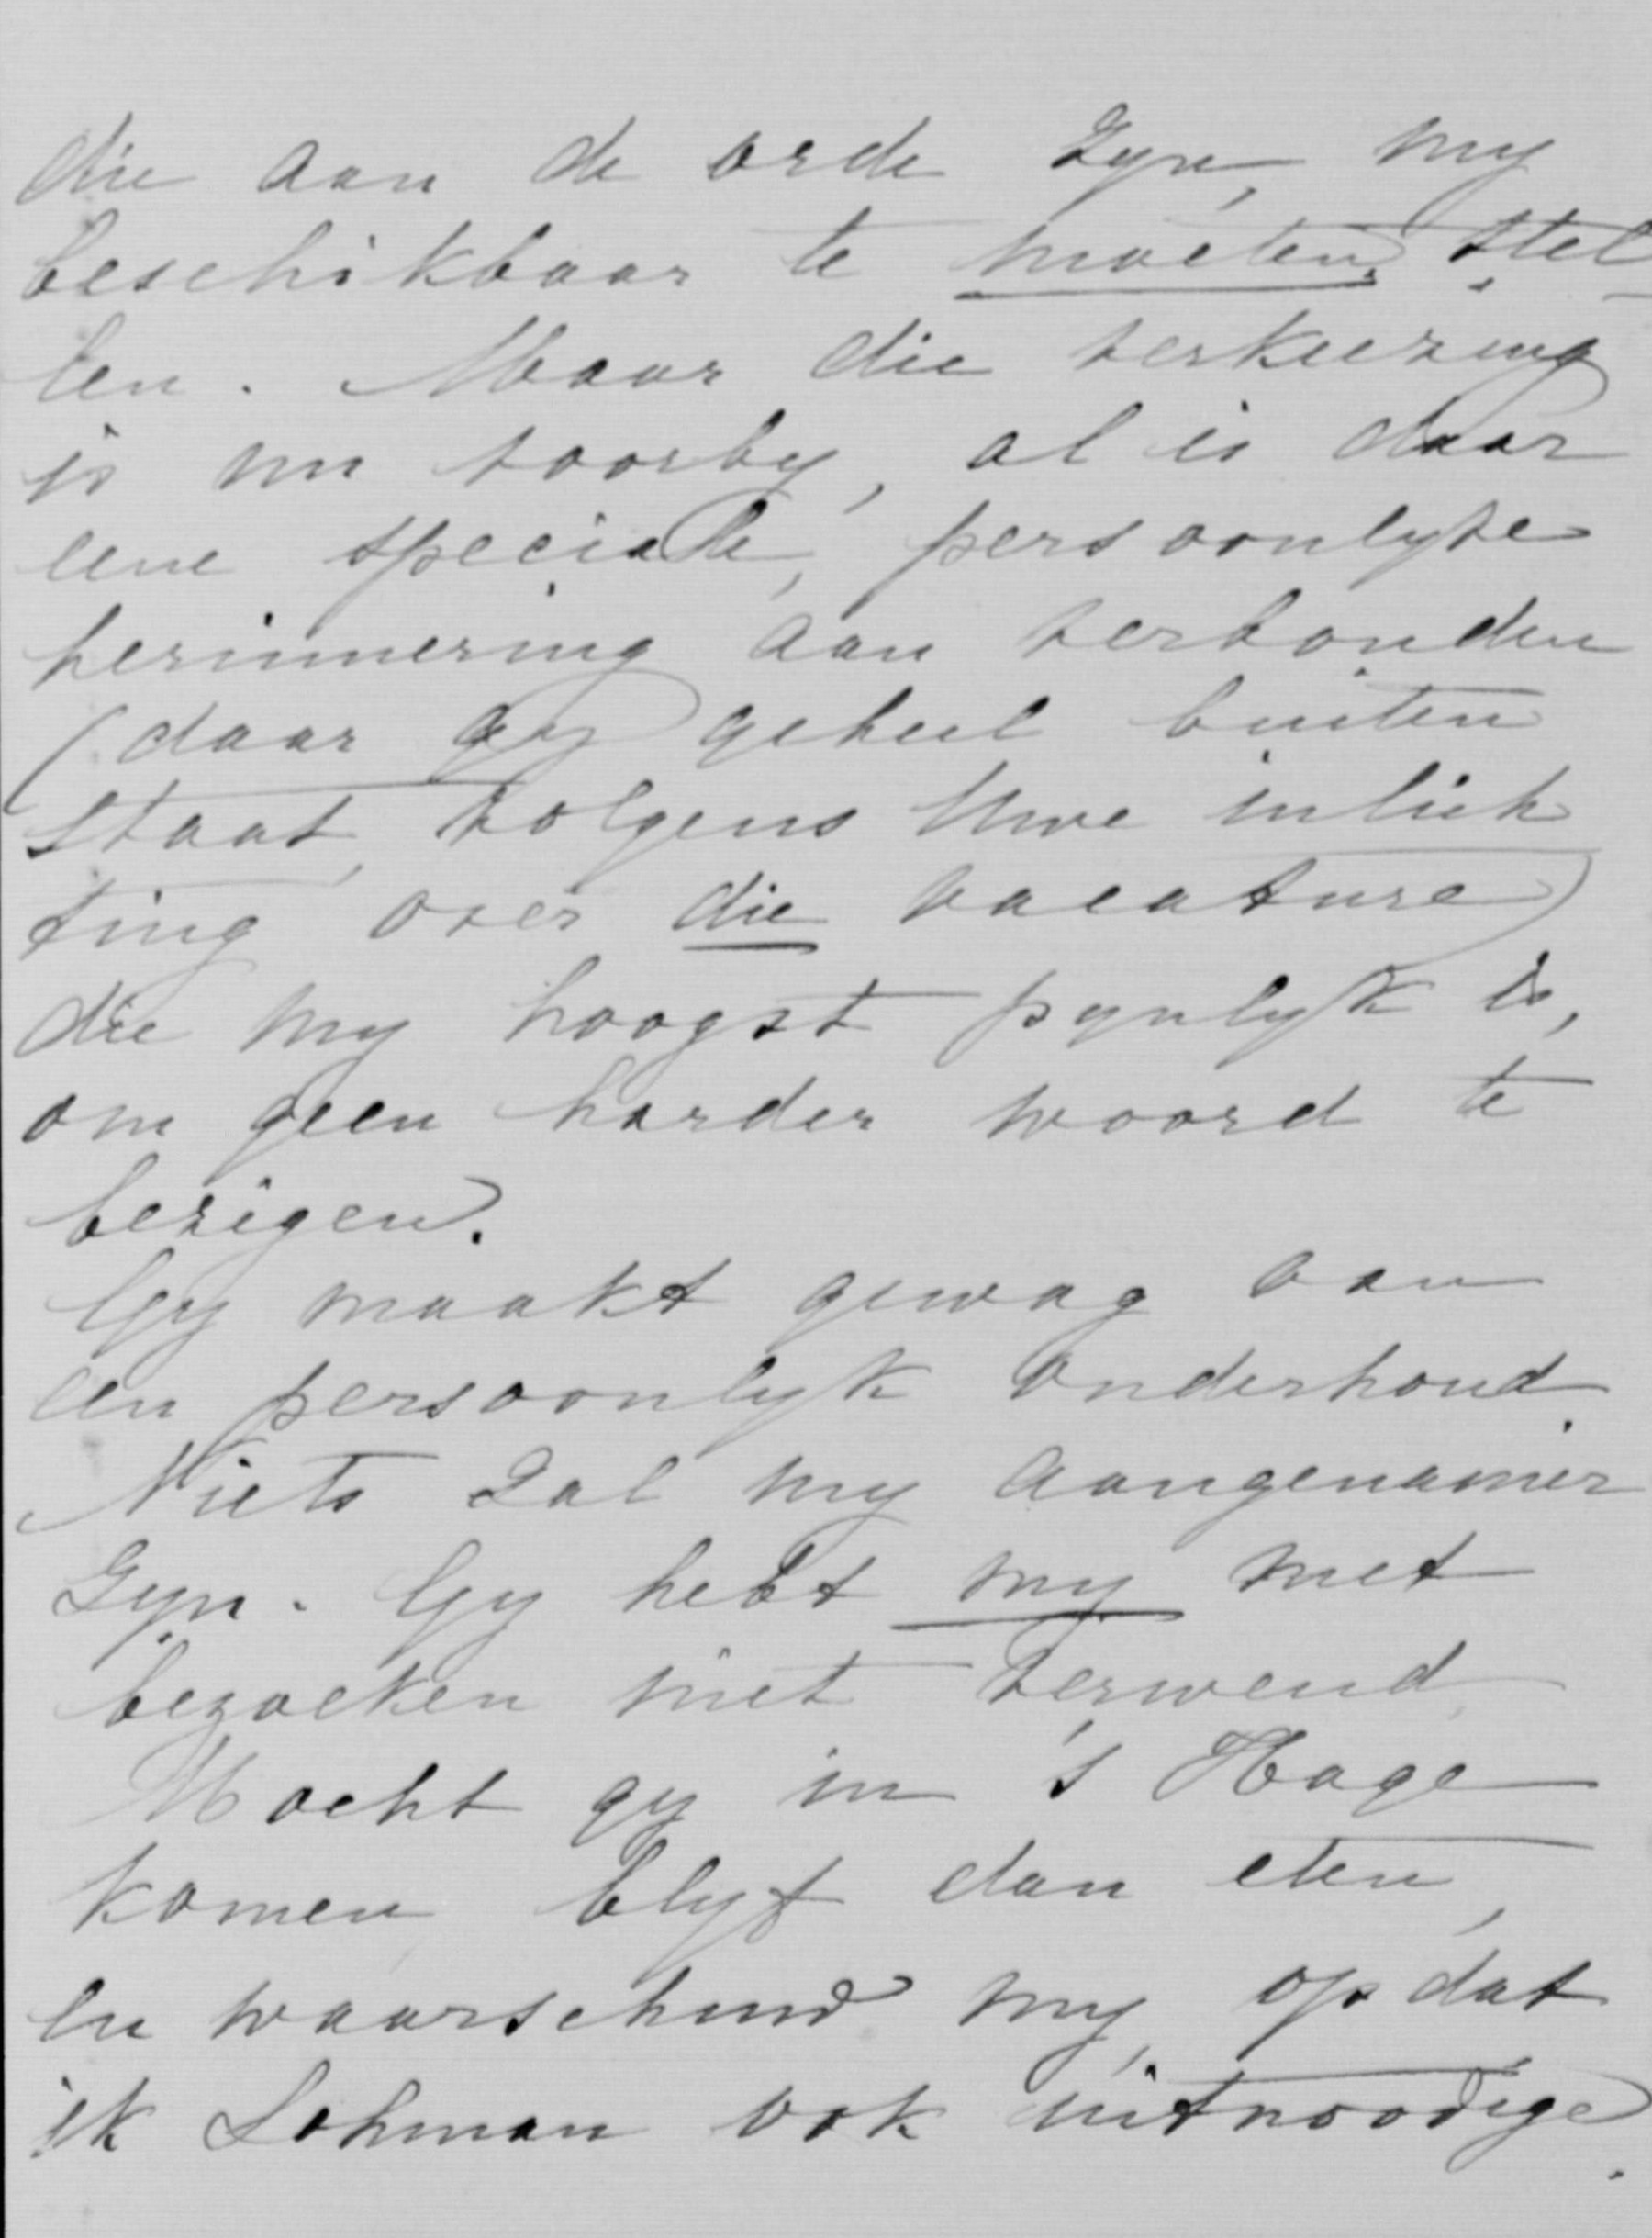 die aan de orde zyn, my
beschikbaar te moeten stel-
len. Maar die verkiezing
is nu voorby, al is daar
eene speciale, persoonlyke
herinnering aan verbonden
(daar gy geheel buiten
staat, volgens Uwe inlich
ting over die vacature)
die my hoogst pynlyk is,
om geen harder woord te
bezigen.
Gy maakt gewag van
een persoonlyk onderhoud.
Niets zal my aangenamer
zyn. Gy hebt my met
bezoeken niet verwend.
Mocht gy in 's Hage
komen blyf dan eten,
en waarschuw my, opdat
ik Lohman ook uitnoodige.